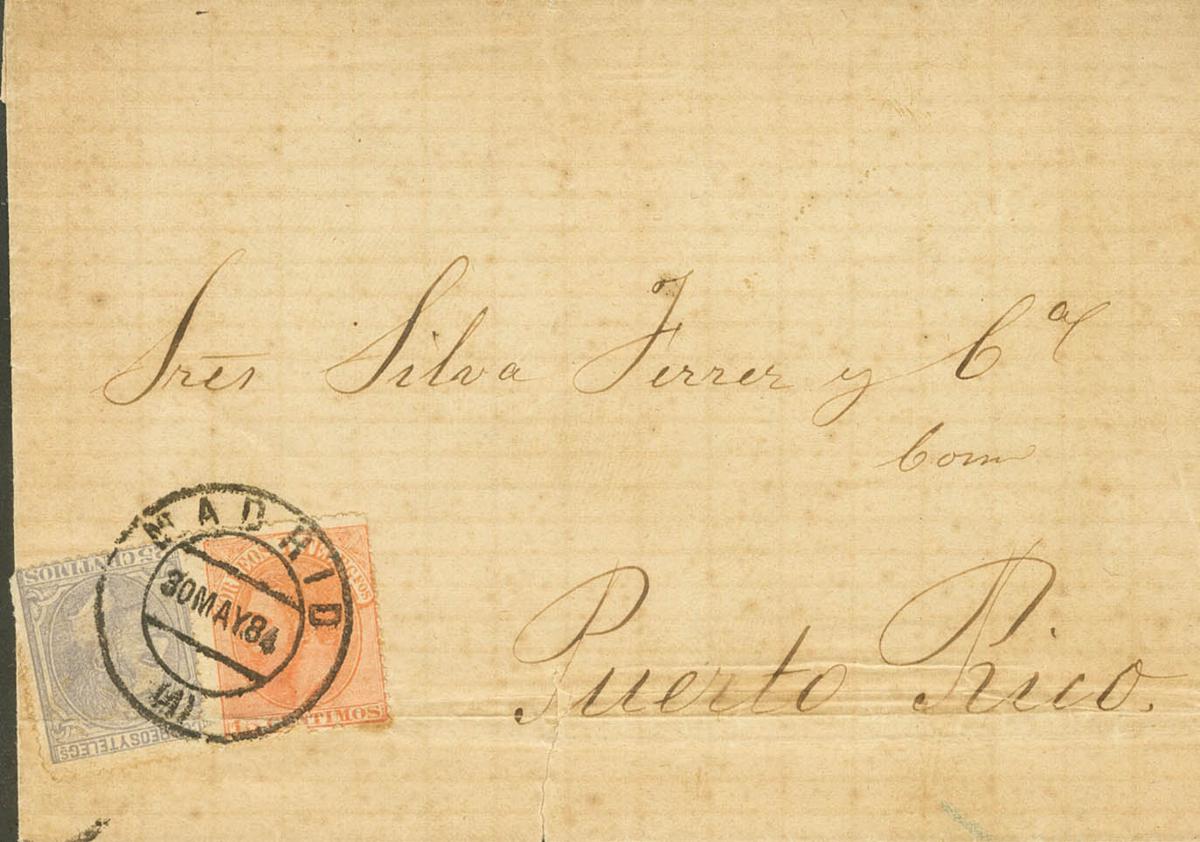 Srēs Silva Ferrer y Cª
Com
Puerto Rico.
MADRID
30MAY.84
(A)
25 CENTIMOS
CORREOS Y TELEGS
CENTIMOS